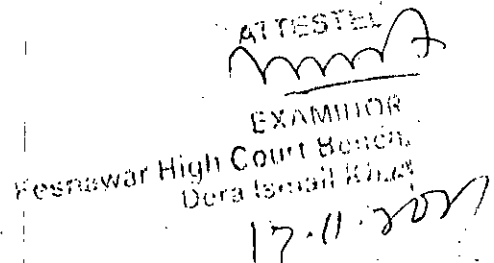 ATTESTED
EXAMINOR
Peshawar High Court Bench,
Dera Ismail Khan
17.11.2021